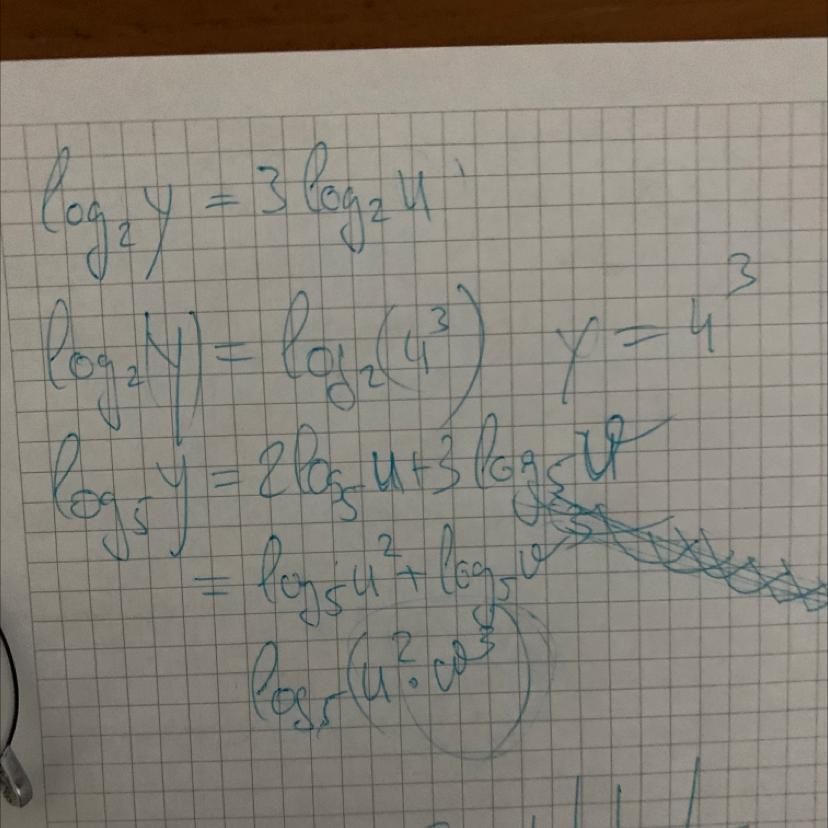 log₂ y = 3 log₂ u
log₂(y) = log₂(u³) y = u³
log₅ y = 2 log₅ u + 3 log₅ v
= log₅ u² + log₅ v³
log₅(u² · v³)